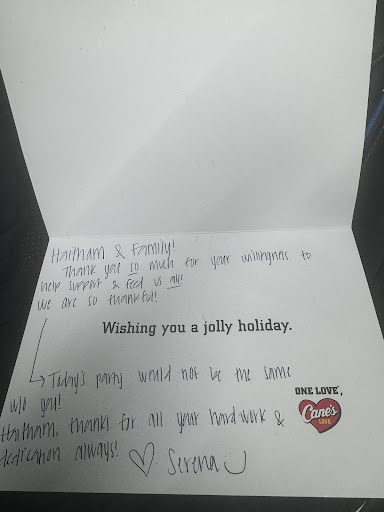 Haitham & Family!
Thank you so much for your willingness to
help support & feed us all!
We are so thankful!
Wishing you a jolly holiday.
Today's party would not be the same
w/o you!
ONE LOVE®,
Cane's
Haitham, thanks for all your hardwork &
dedication always! ♡ Serena